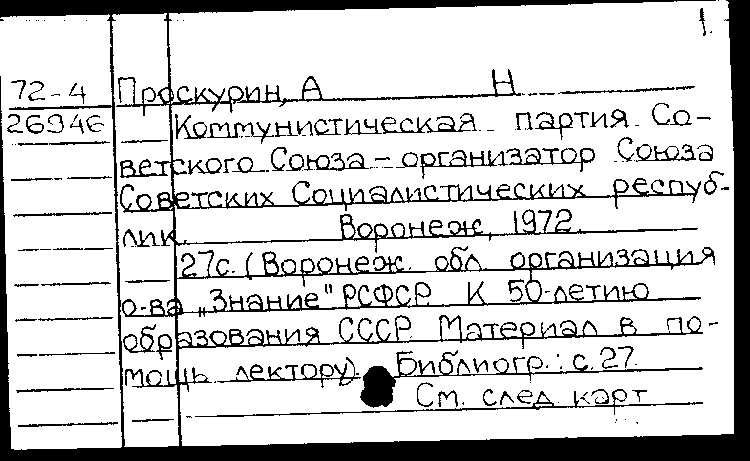 1.
72-4 Проскурин, А Н
26946 Коммунистическая партия Со-
ветского Союза – организатор Союза
Советских Социалистических респуб-
лик. Воронеж, 1972.
27с. (Воронеж. обл. организация
о-ва „Знание" РСФСР. К 50-летию
образования СССР. Материал в по-
мощь лектору). Библиогр.: с. 27.
См. след карт